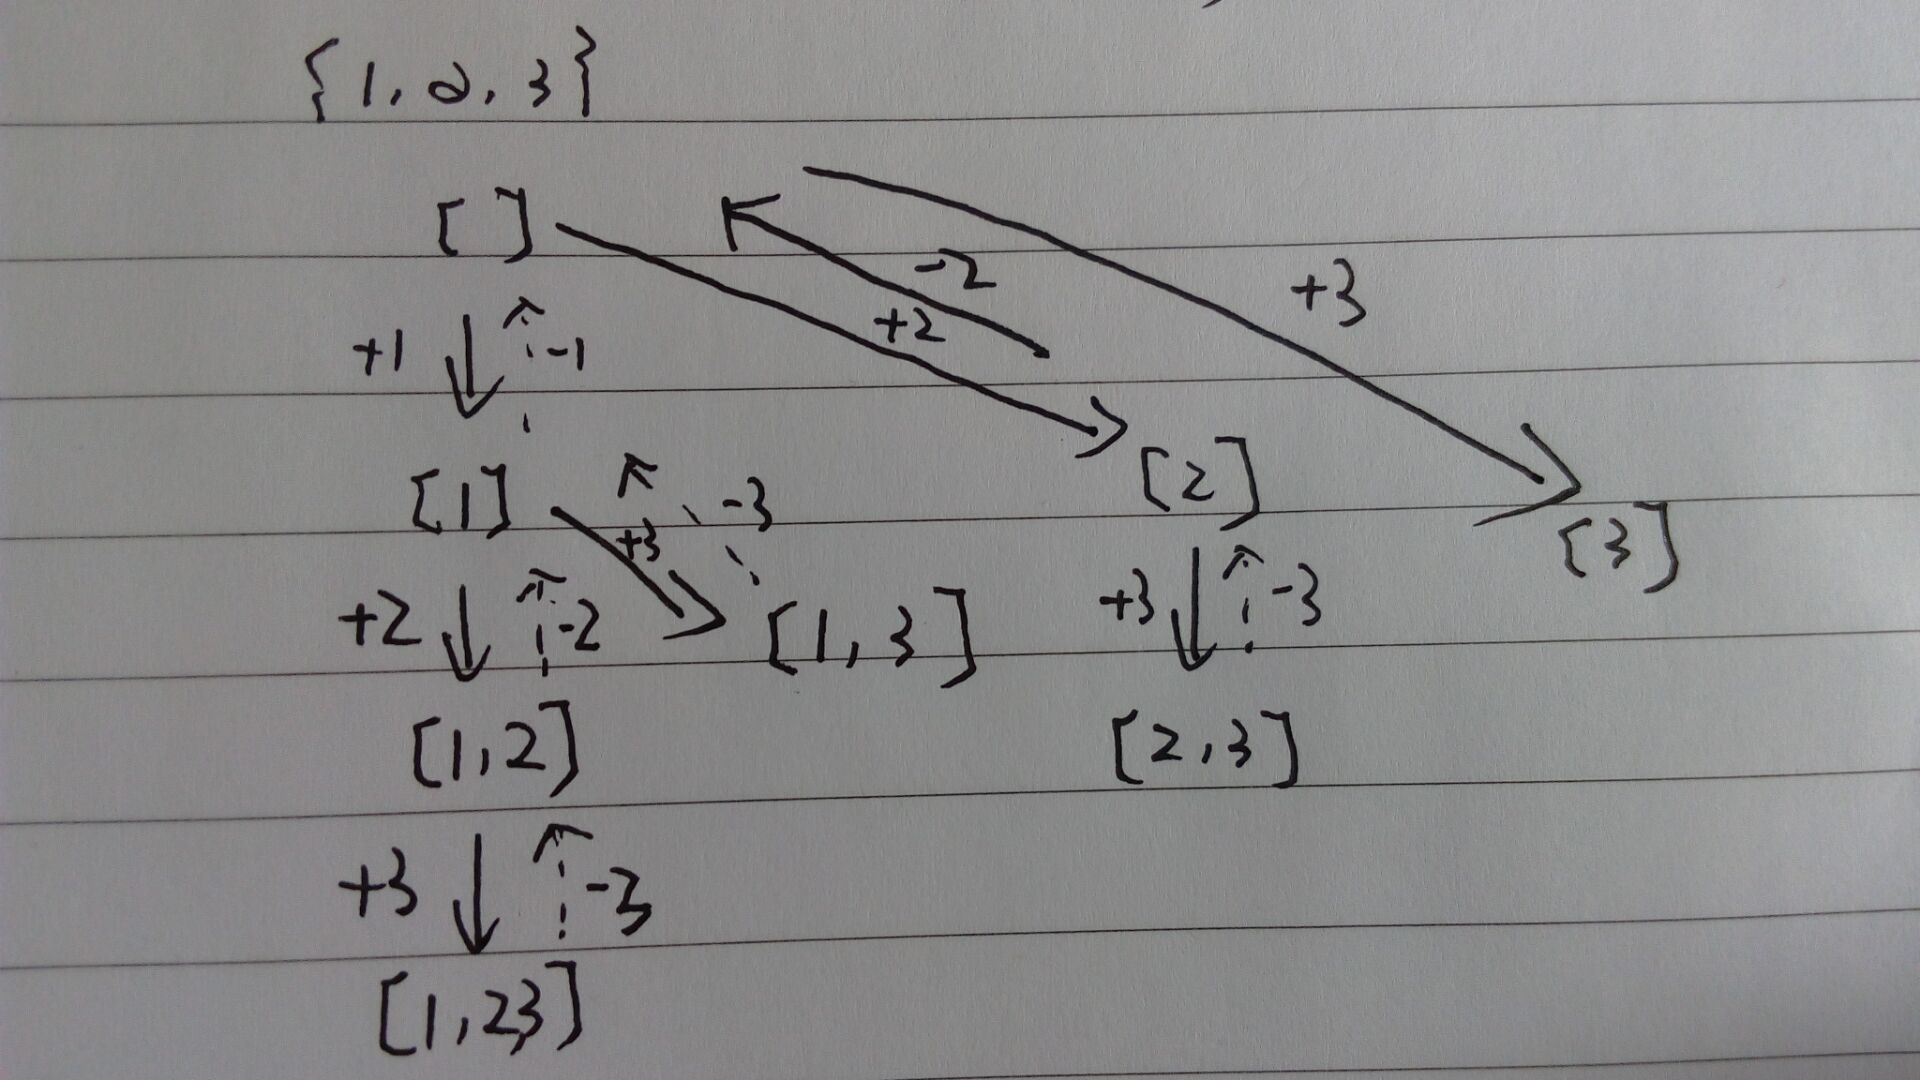 {1,2,3}
[ ]
-2
+2
+3
+1 -1
[1] -3 [2]
+3 [3]
+2 -2 [1,3] +3 -3
[1,2] [2,3]
+3 -3
[1,2,3]